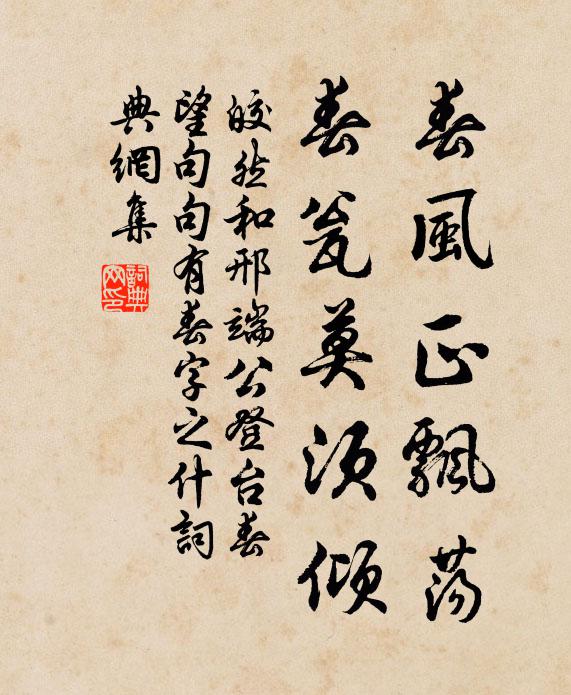 春風正飄蕩
春瓮莫須傾
皎然和邢端公登台春
望句句有春字之什詞
典網集
詞典
网印